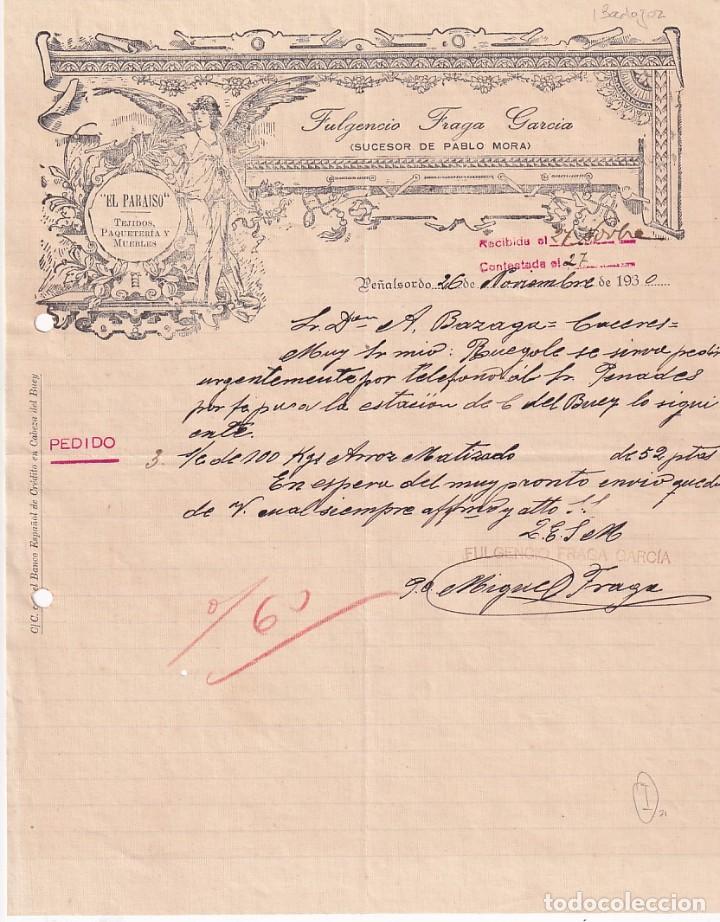 Badajoz
Fulgencio Fraga Garcia
(SUCESOR DE PABLO MORA)
"EL PARAISO"
TEJIDOS,
PAQUETERÍA Y
MUEBLES
Recibida el 27
Contestada el 27
Peñalsordo 26 de Noviembre de 1930
Sr. Don A. Bazaga = Caceres =
Muy Sr mio: Ruegole se sirva pedir
urgentemente por telefono al Sr. Penades
por fa para la estación de C del Buey lo sigui
ente.
PEDIDO
3 s/c de 100 Kgs Arroz Matizado de 52 ptas
En espera del muy pronto envio queda
de V. cual siempre affmo y atto S.S.
Q.E.S.M
FULGENCIO FRAGA GARCÍA
P.O. Miguel Fraga
C/C. el Banco Español de Crédito en Cabeza del Buey
I
todocoleccion